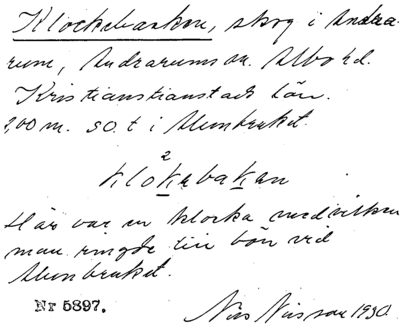 Klockebacken, skog i Andra-
rum, Andrarums sn. Albo hd.
Kristianstianstads län.
200 m. SO. t i Alunbruket.
2
kloKebaKan
Här var en klocka med vilken
man ringde till bön ved
Alunbruket.
Nr 5897. Nils Nilsson 1930.